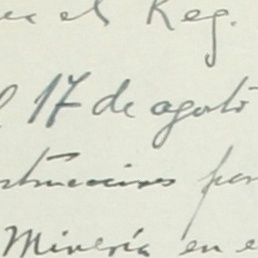 el Reg.
17 de agosto
strucciones par
Minería en e